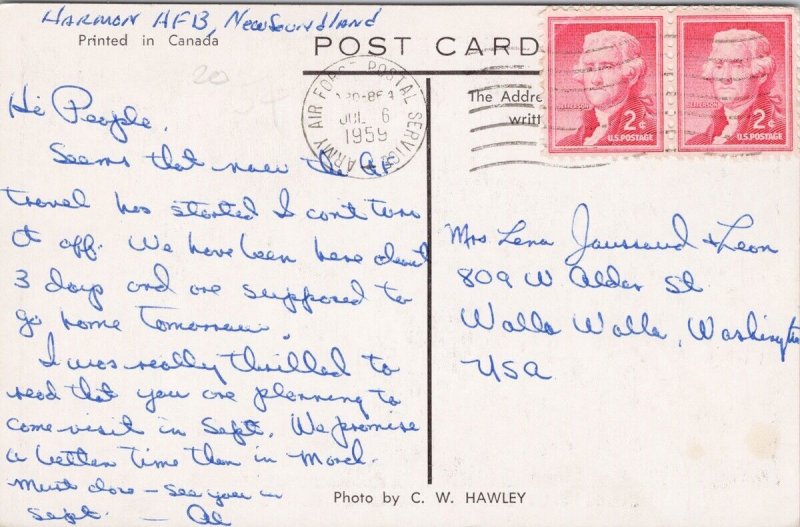 HARMON AFB, Newfoundland
Printed in Canada
POST CARD
20
ARMY AIR FORCE POSTAL SERVICE
JUL 6
1959
The Addre
writt
JEFFERSON
2¢
U.S. POSTAGE
JEFFERSON
2¢
U.S. POSTAGE
Hi People,
Seems that now the AF
travel has started I can't turn
it off. We have been here about
3 days and are supposed to
go home tomorrow.
I was really thrilled to
read that you are planning to
come visit in Sept. We promise
a better time than in March.
Must close - see you in
Sept. — Al
Mrs Lena Jaussaud & Leon
809 W Alder St
Walla Walla, Washington
USA
Photo by C. W. HAWLEY